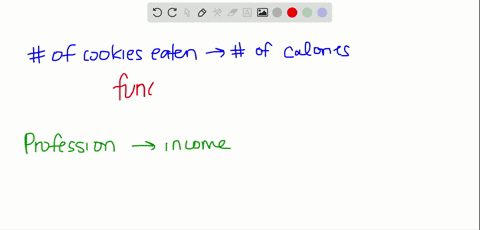 # of cookies eaten → # of calories
func
Profession → income